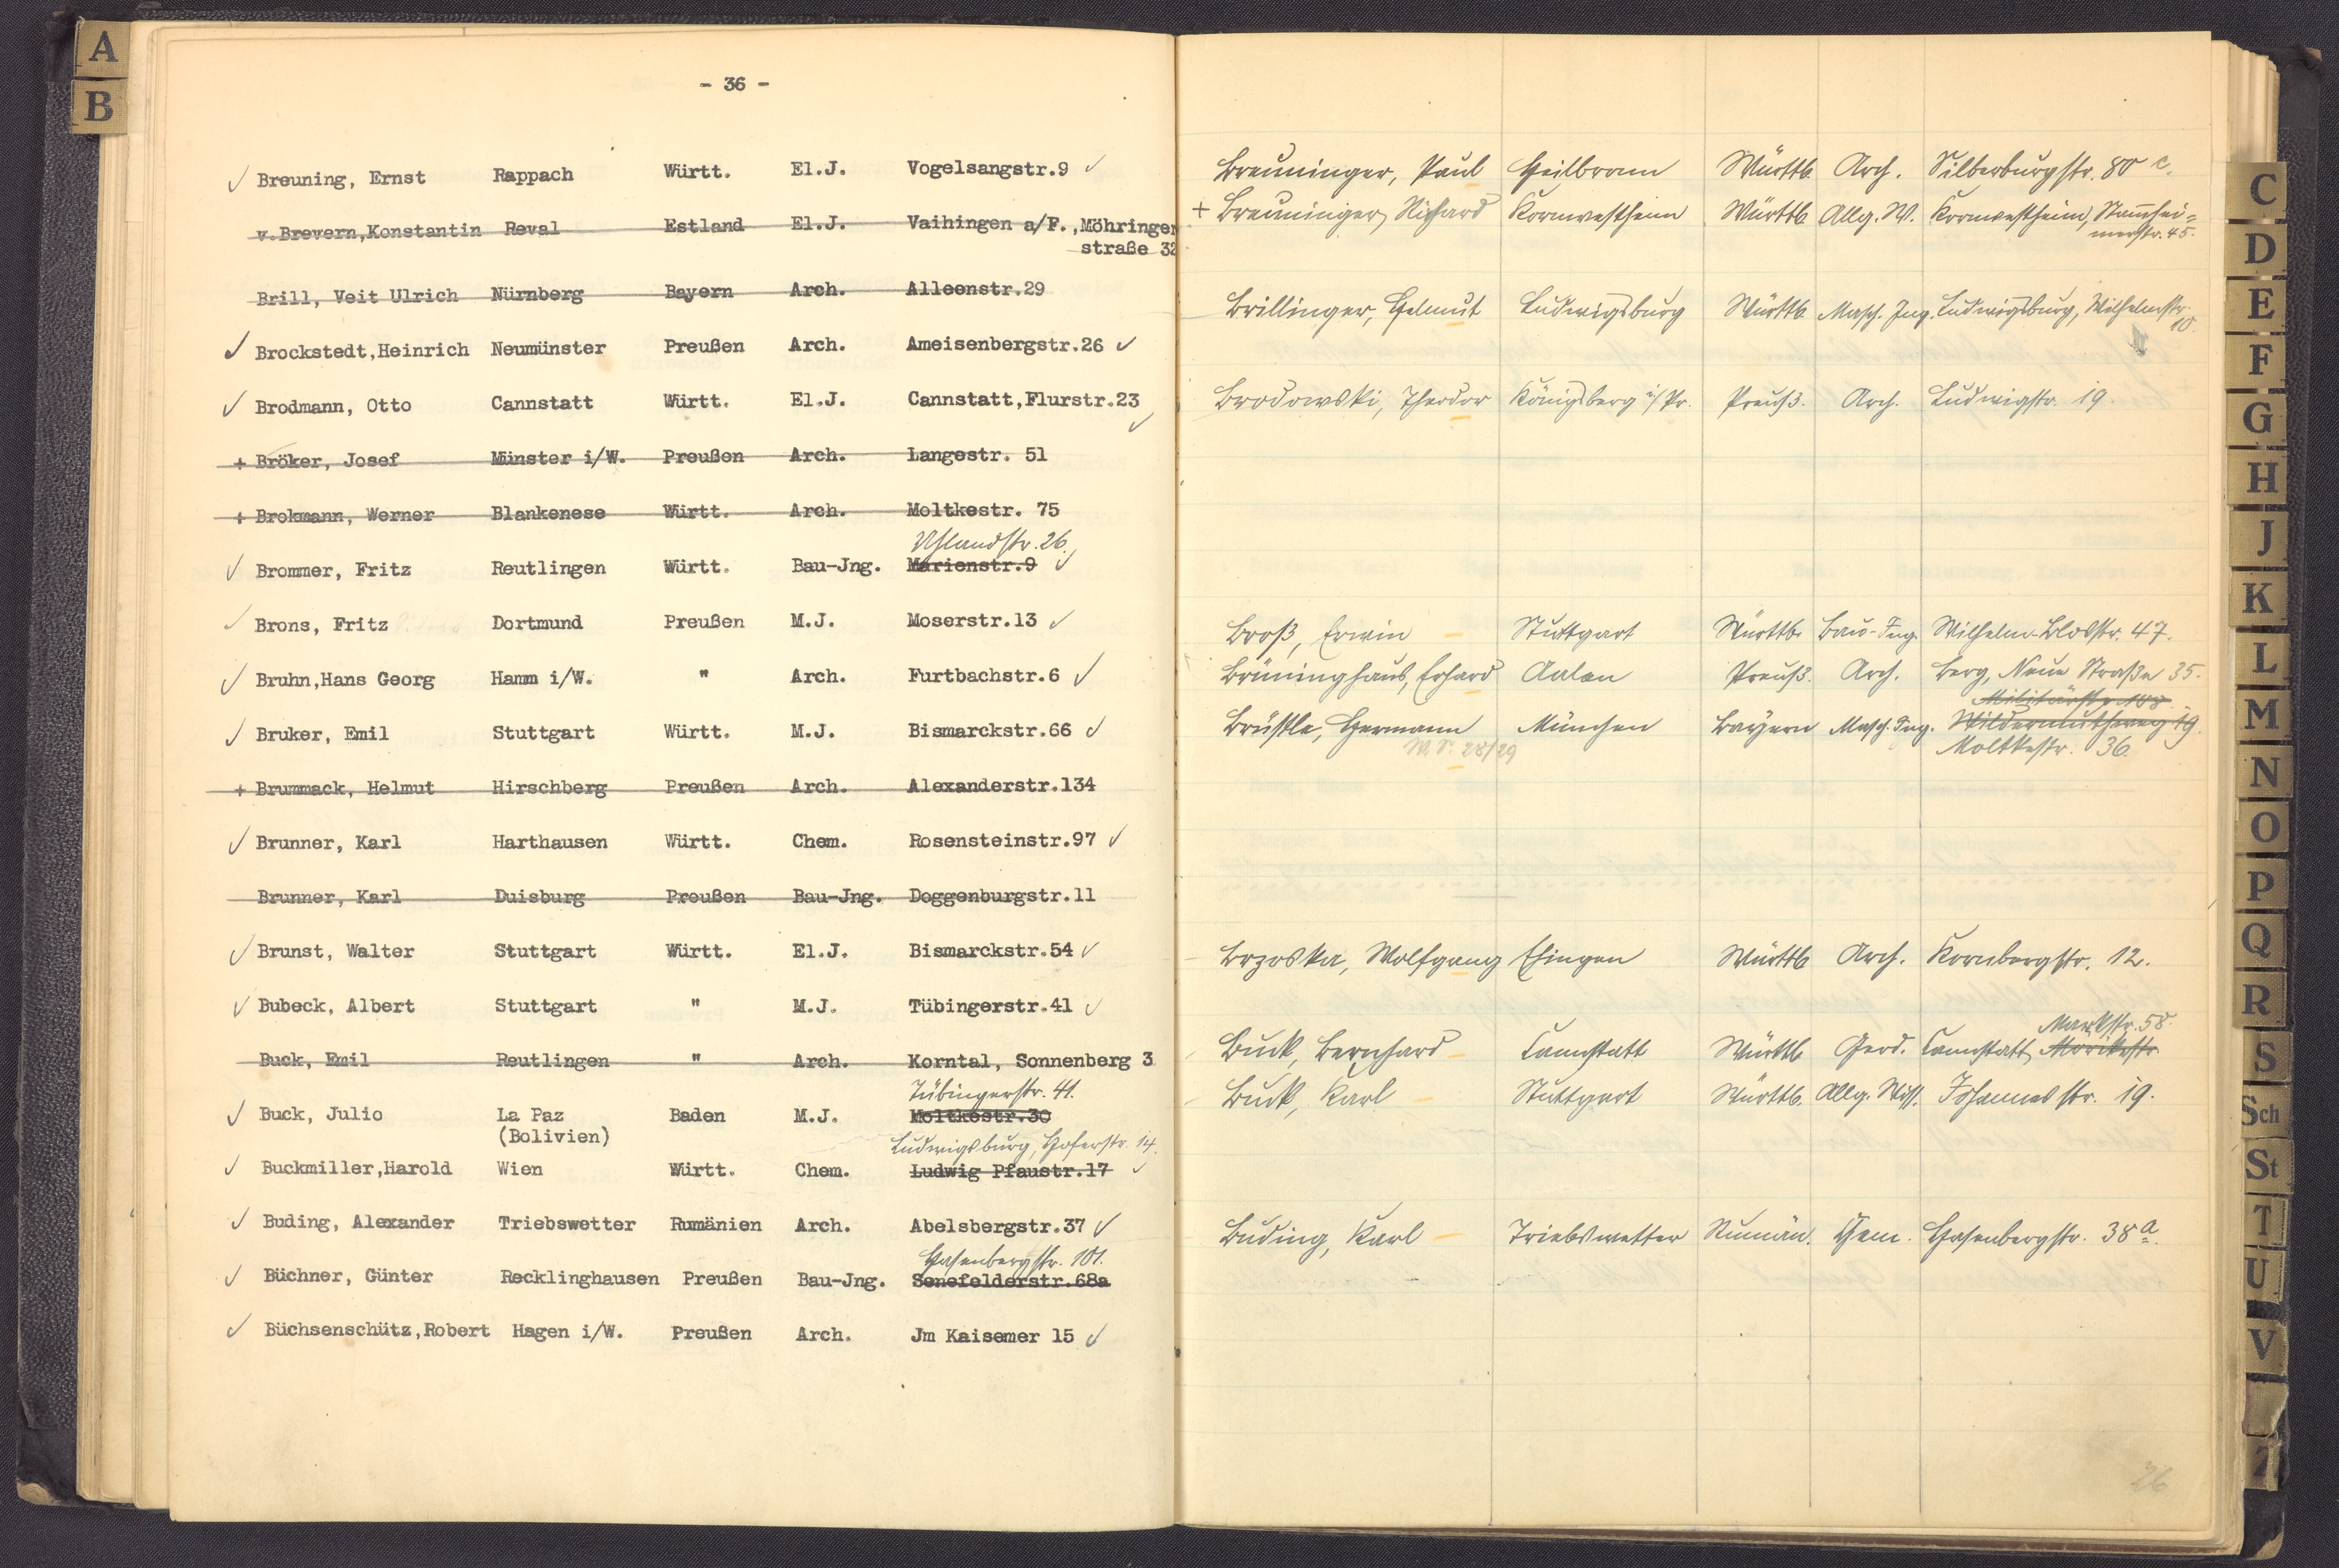 A
B
- 36 -
Breuning, Ernst Rappach Württ. El.J. Vogelsangstr.9
v.Brevern,Konstantin Reval Estland El.J. Vaihingen a/F.,Möhringer
straße 32
Brill, Veit Ulrich Nürnberg Bayern Arch. Alleenstr.29
Brockstedt,Heinrich Neumünster Preußen Arch. Ameisenbergstr.26
Brodmann, Otto Cannstatt Württ. El.J. Cannstatt,Flurstr.23
+ Bröker, Josef Münster i/W. Preußen Arch. Langestr. 51
+ Brokmann, Werner Blankenese Württ. Arch. Moltkestr. 75
Uhlandstr. 26.
Brommer, Fritz Reutlingen Württ. Bau-Jng. Marienstr.9
Brons, Fritz Dortmund Preußen M.J. Moserstr.13
Bruhn,Hans Georg Hamm i/W. " Arch. Furtbachstr.6
Bruker, Emil Stuttgart Württ. M.J. Bismarckstr.66
+ Brummack, Helmut Hirschberg Preußen Arch. Alexanderstr.134
Brunner, Karl Harthausen Württ. Chem. Rosensteinstr.97
Brunner, Karl Duisburg Preußen Bau-Jng. Doggenburgstr.11
Brunst, Walter Stuttgart Württ. El.J. Bismarckstr.54
Bubeck, Albert Stuttgart " M.J. Tübingerstr.41
Buck, Emil Reutlingen " Arch. Korntal, Sonnenberg 3
Tübingerstr. 41.
Buck, Julio La Paz Baden M.J. Moltkestr.30
(Bolivien)
Ludwigsburg, Hoferstr. 14.
Buckmiller,Harold Wien Württ. Chem. Ludwig Pfaustr.17
Buding, Alexander Triebswetter Rumänien Arch. Abelsbergstr.37
Hasenbergstr. 101.
Büchner, Günter Recklinghausen Preußen Bau-Jng. Senefelderstr.68a
Büchsenschütz,Robert Hagen i/W. Preußen Arch. Jm Kaisemer 15
Breuninger, Paul Heilbronn Württb. Arch. Silberburgstr. 80 c.
+ Breuninger, Richard Kornwestheim Württb. Allg. W. Kornwestheim, Stammhei=
merstr. 45.
Brillinger, Helmut Ludwigsburg Württb. Masch. Ing. Ludwigsburg, Wilhelmstr.
10.
Brodowski, Theodor Königsberg i/Pr. Preuß. Arch. Ludwigstr. 19.
Broß, Erwin Stuttgart Württb. Bau-Ing. Wilhelm-Blosstr. 47.
Brüninghaus, Erhard Aalen Preuß. Arch. Berg, Neue Straße 35.
Militärstr. 108.
Brüstle, Hermann München Bayern Masch. Ing. Wildermuthweg 19.
W.S. 28/29 Moltkestr. 36.
Brzoska, Wolfgang Ehingen Württb. Arch. Kornbergstr. 12.
Markstr. 58.
Buck, Bernhard Cannstatt Württb. Geod. Cannstatt, Mörikestr.
Buck, Karl Stuttgart Württb. Allg. Wiss. Johannesstr. 19.
Buding, Karl Triebswetter Rumän. Chem. Hasenbergstr. 38 a.
26
C
D
E
F
G
H
J
K
L
M
N
O
P
Q
R
S
Sch
St
T
U
V
Z